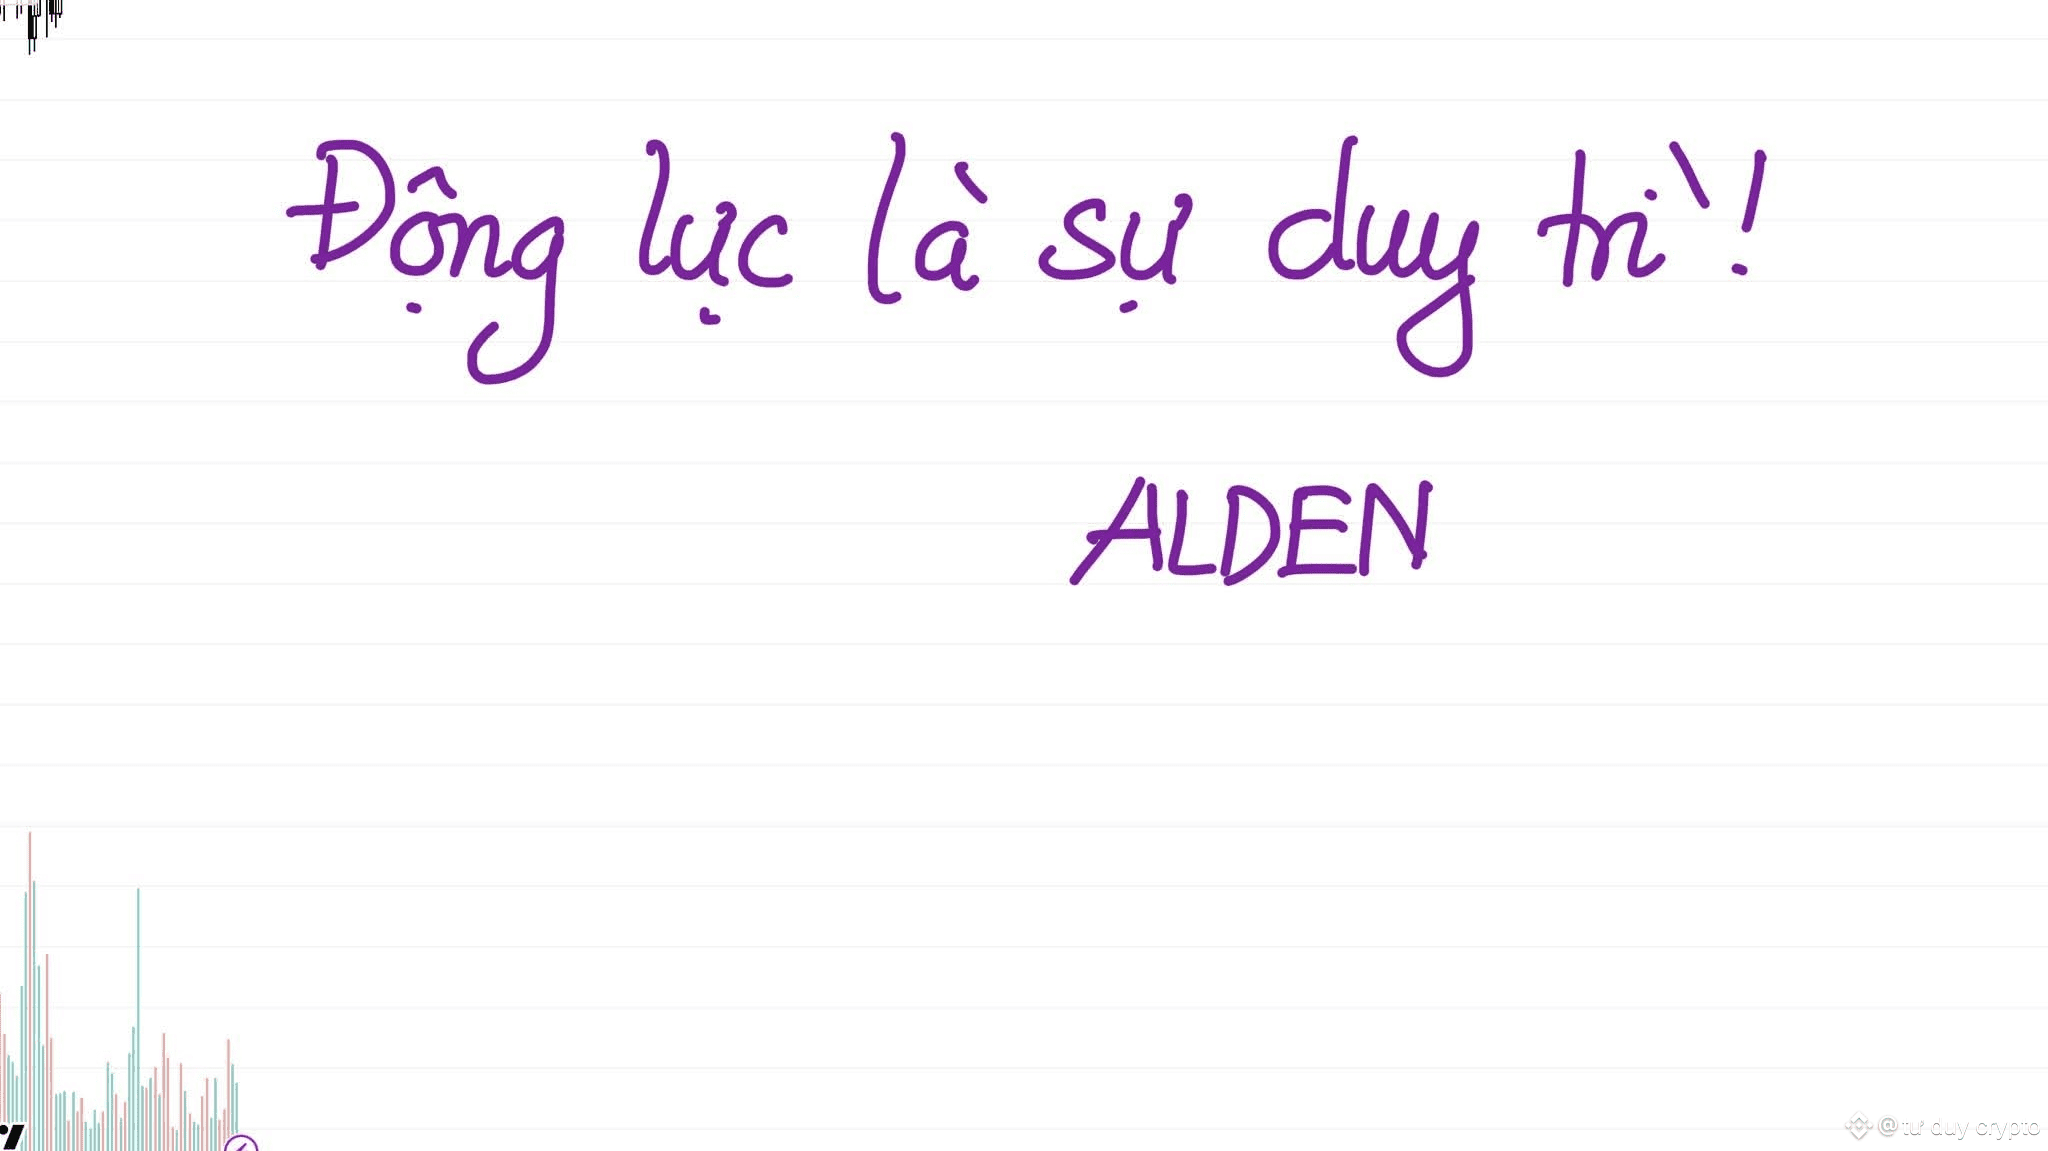 Động lực là sự duy trì!
ALDEN
@tư duy crypto